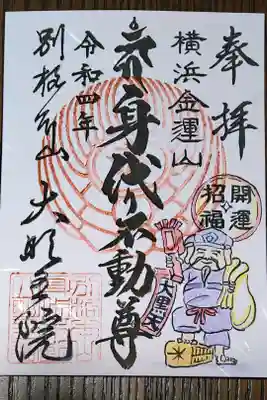 奉拝
横浜金運山
身代り不動尊
令和四年
別格本山 大明王院
開運
招福
大黒天